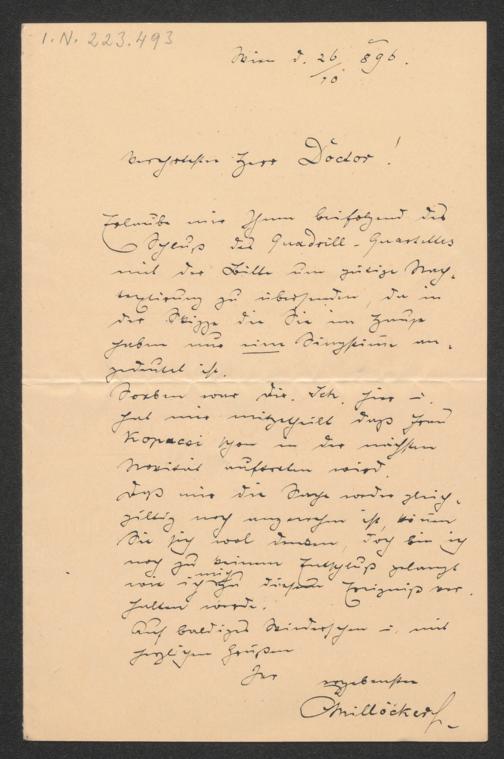 I.N. 223.493
Wien d. 26/10 896.
Verehrtester Herr Doctor!
Erlaube mir Ihnen beifolgend das
Schluß des Quadrill-Quartettes
mit der Bitte um gütige Nach-
textirung zu übersenden, da in
der Skizze die Sie im Hause
haben nur eine Singstimme an-
gedeutet ist.
Soeben war Dir. Sch. hier u.
hat mir mitgetheilt daß Frau
Kopacsi schon in der nächsten
Novität auftreten wird.
Daß mir die Sache weder gleich-
giltig noch angenehm ist, können
Sie sich wol denken, doch bin ich
noch zu keinem Entschluß gelangt
wie ich mich zu diesem Ereigniß ver-
halten werde.
Auf baldiges Wiedersehen u. mit
herzlichen Grüßen
Ihr ergebenster
CMillöcker